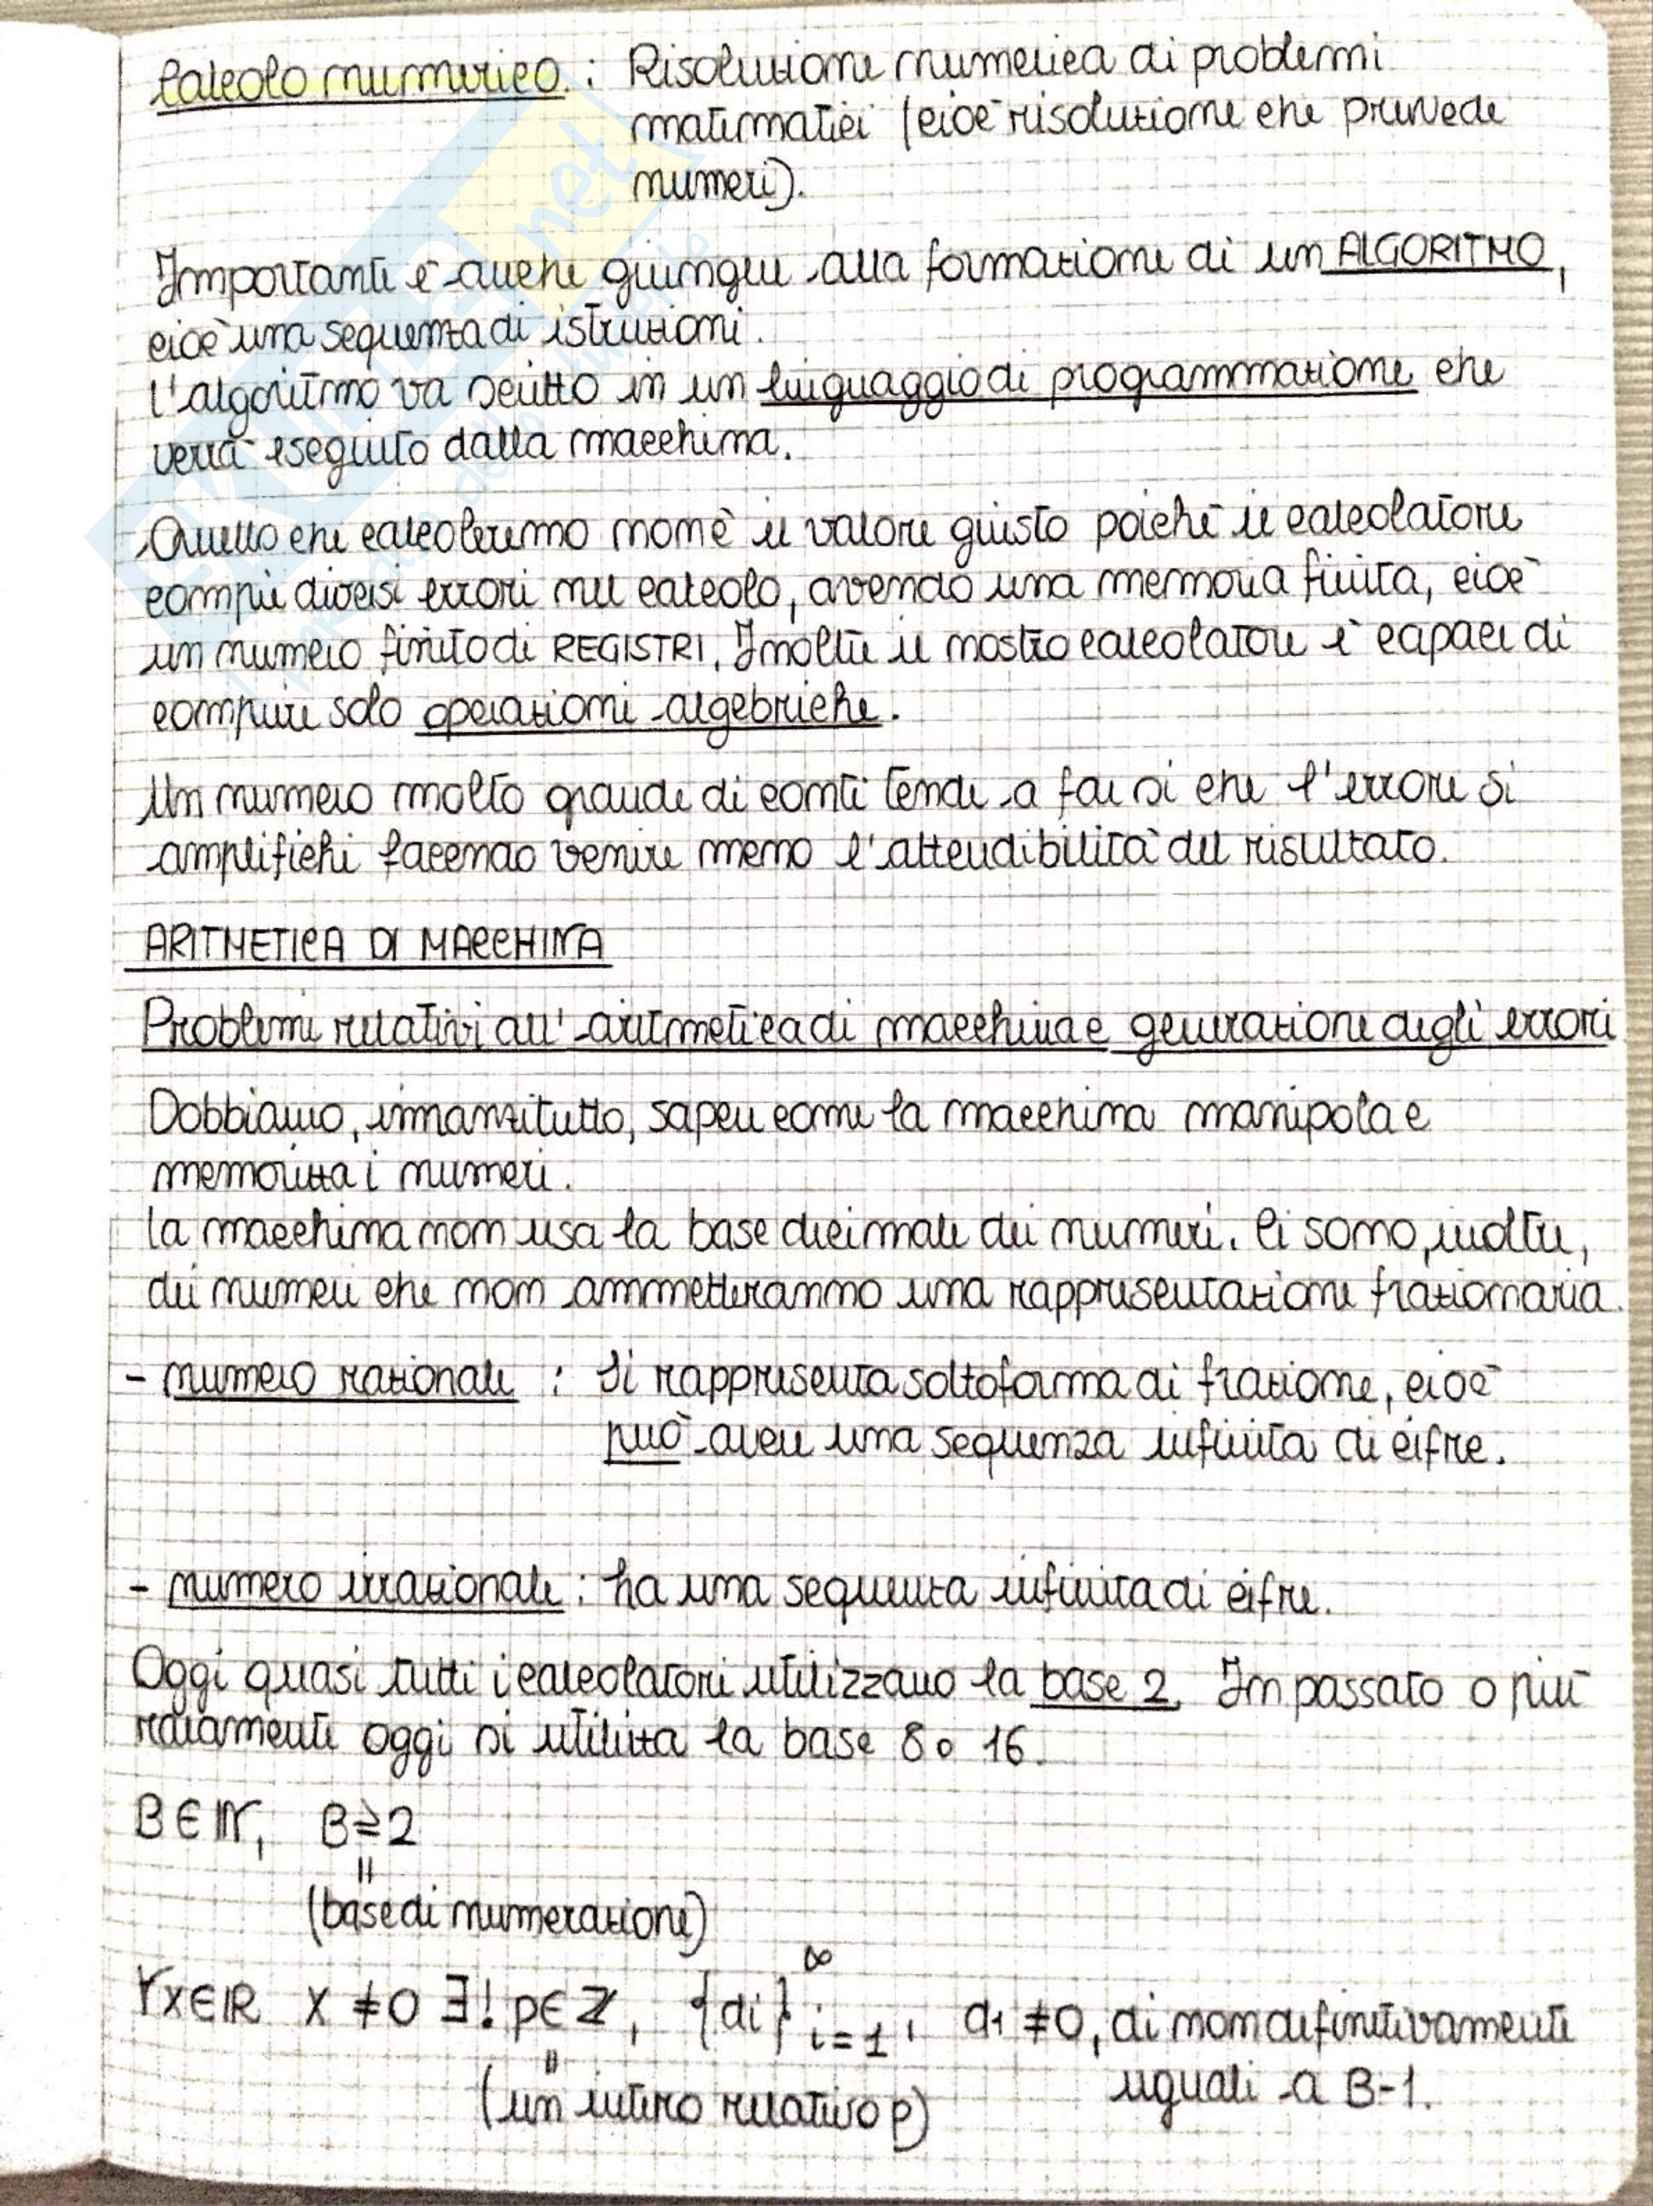 Calcolo numerico : Risoluzione numerica di problemi
matematici (cioè risoluzione che prevede
numeri).
Importante è anche giungere alla formazione di un ALGORITMO,
cioè una sequenza di istruzioni.
L'algoritmo va scritto in un linguaggio di programmazione che
verrà eseguito dalla macchina.
Quello che calcoleremo non è il valore giusto poichè il calcolatore
compie diversi errori nel calcolo, avendo una memoria finita, cioè
un numero finito di REGISTRI. Inoltre il nostro calcolatore è capace di
compiere solo operazioni algebriche.
Un numero molto grande di conti tende a far sì che l'errore si
amplifichi facendo venire meno l'attendibilità del risultato.
ARITMETICA DI MACCHINA
Problemi relativi all'aritmetica di macchina e generazione degli errori
Dobbiamo, innanzitutto, sapere come la macchina manipola e
memorizza i numeri.
La macchina non usa la base decimale dei numeri. Ci sono, inoltre,
dei numeri che non ammetteranno una rappresentazione frazionaria.
- numero razionale : Si rappresenta sottoforma di frazione, cioè
può avere una sequenza infinita di cifre.
- numero irrazionale : ha una sequenza infinita di cifre.
Oggi quasi tutti i calcolatori utilizzano la base 2. In passato o più
raramente oggi si utilizza la base 8 o 16.
B ∈ ℕ, B ≥ 2
(base di numerazione)
∀x∈ℝ x ≠ 0 ∃! p∈ℤ, {di}∞ i=1, d1 ≠ 0, di non definitivamente
(un intero relativo p) uguali a B-1.